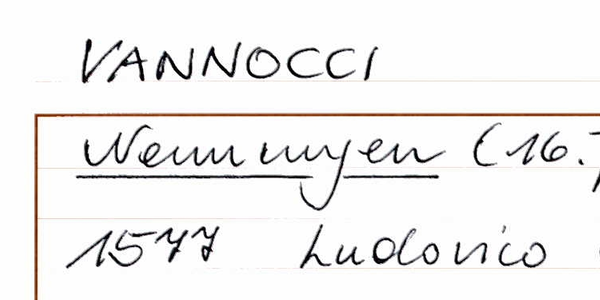 VANNOCCI
Nennungen (16.
1577 Ludovico